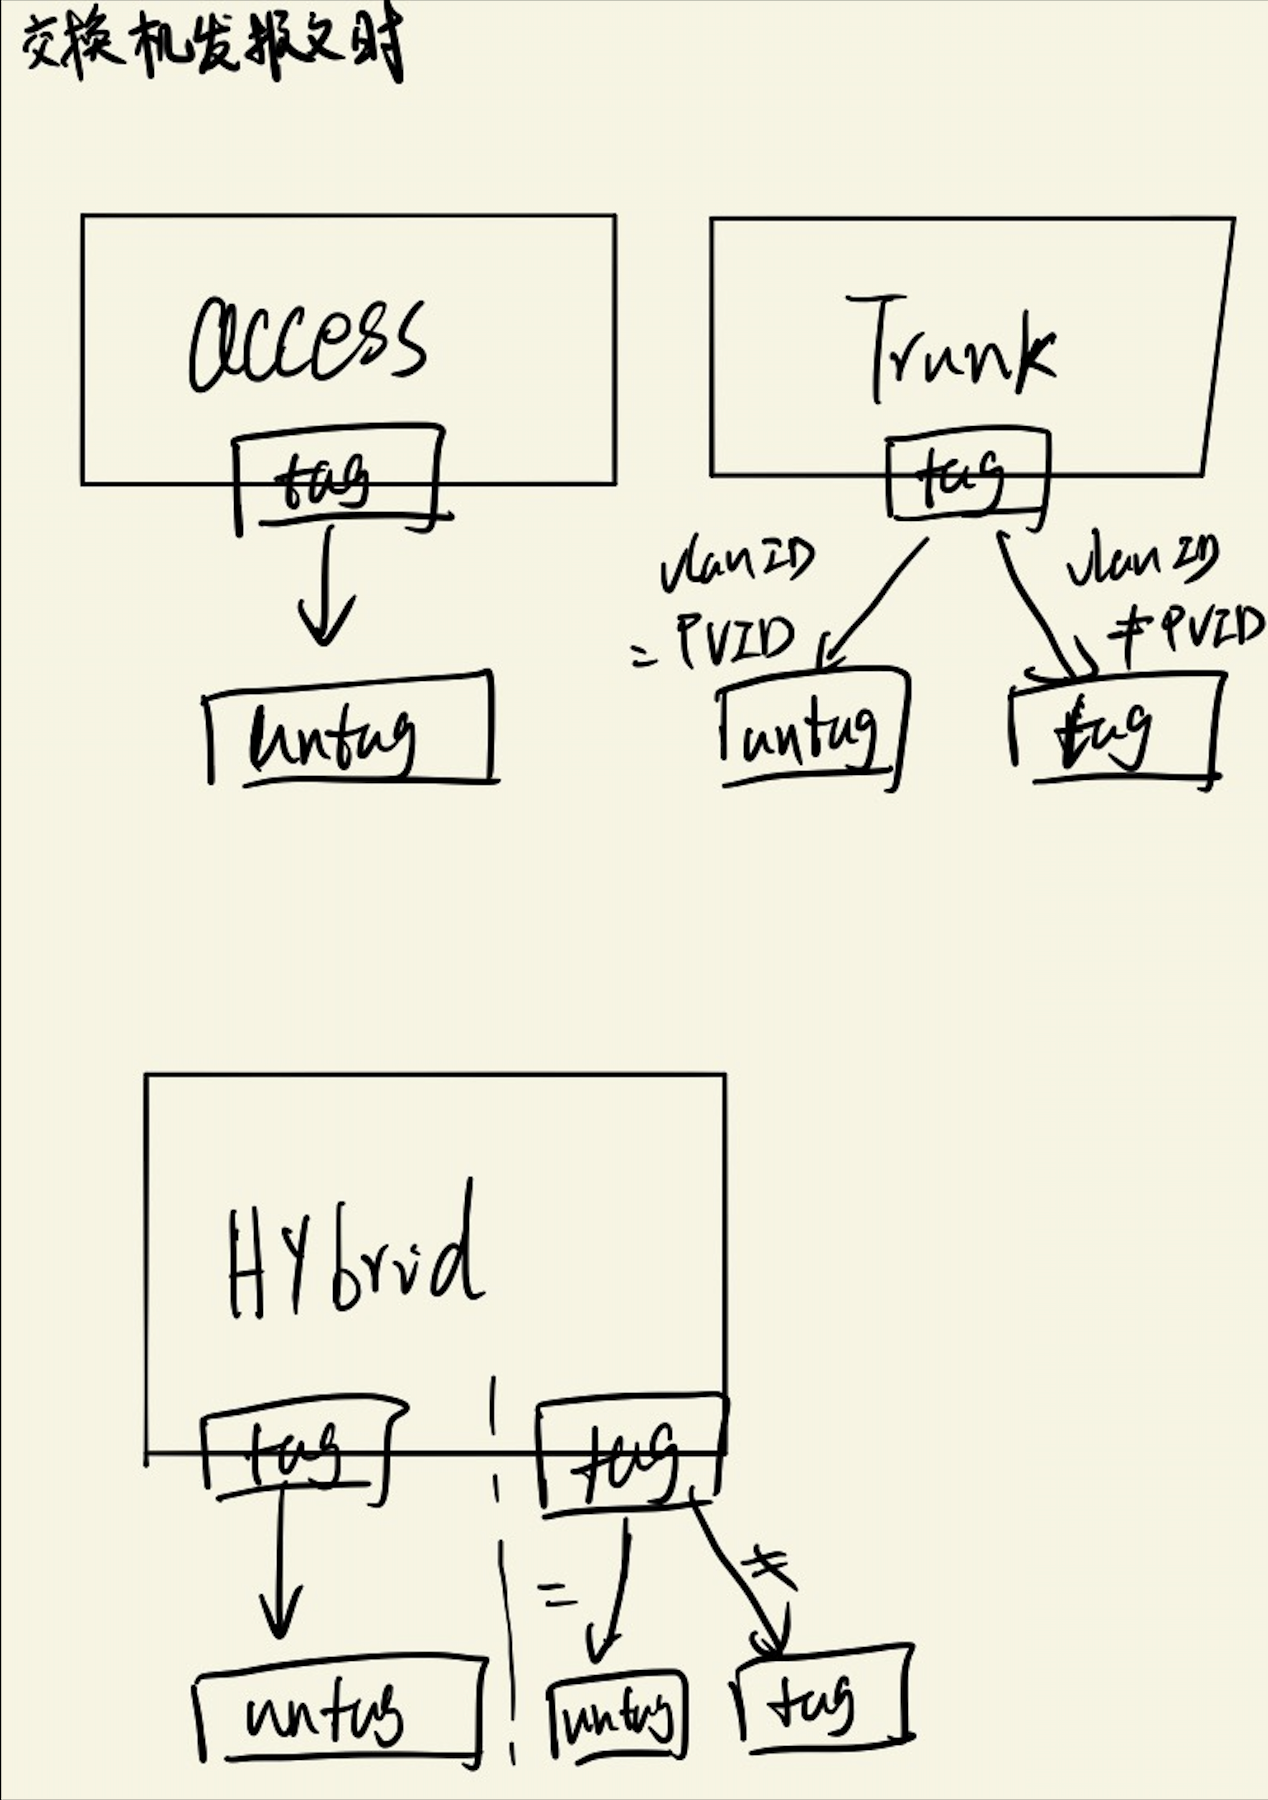 交换机发报文时
access
Trunk
tag
tag
vlan ID
= PVID
vlan ID
≠ PVID
untag
untag
tag
HYbrid
tag
tag
=
≠
untag
untag
tag